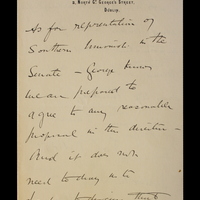 Dublin.
As for representation of
Southern Unionists in the
Senate – George knows
we are prepared to
agree to any reasonable
proposal in this direction –
And it does not
need to delay us to